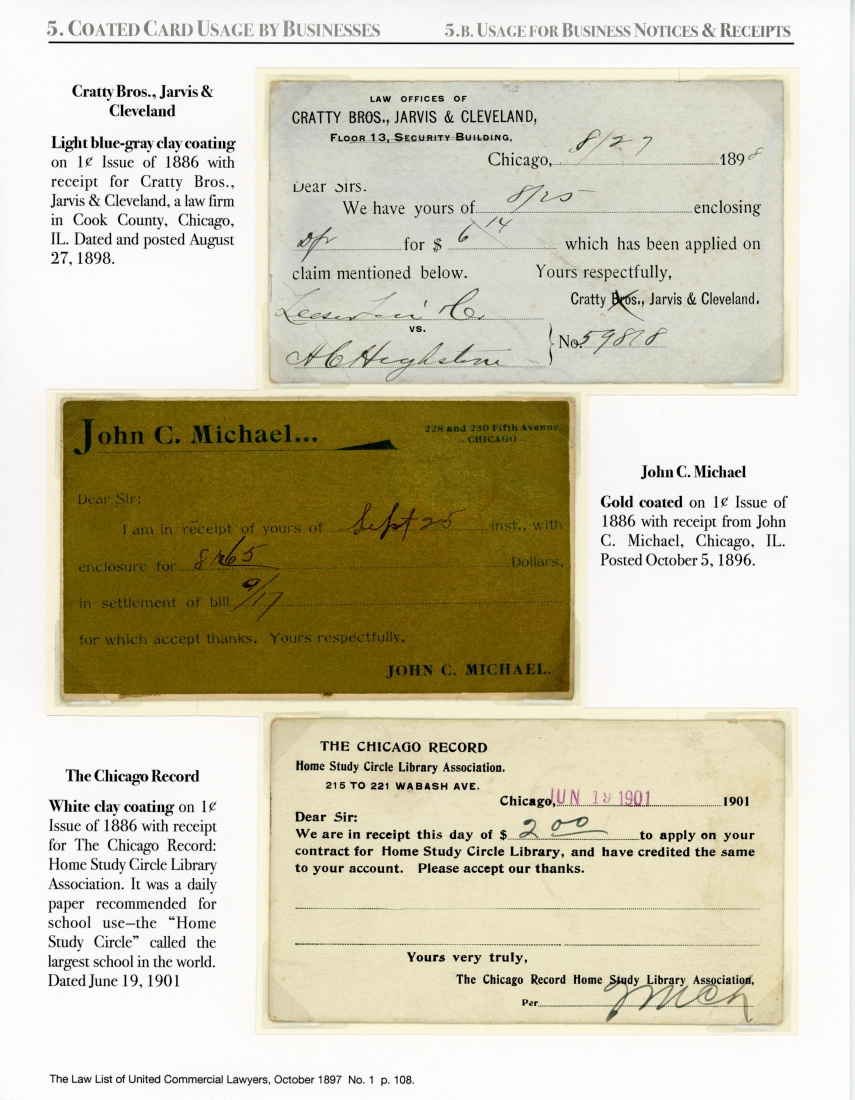 5. COATED CARD USAGE BY BUSINESSES
5.B. USAGE FOR BUSINESS NOTICES & RECEIPTS
Cratty Bros., Jarvis &
Cleveland
Light blue-gray clay coating
on 1¢ Issue of 1886 with
receipt for Cratty Bros.,
Jarvis & Cleveland, a law firm
in Cook County, Chicago,
IL. Dated and posted August
27, 1898.
LAW OFFICES OF
CRATTY BROS., JARVIS & CLEVELAND,
FLOOR 13, SECURITY BUILDING,
Chicago, 8/27 1898
Dear Sirs.
We have yours of 8/25 enclosing
for $ 6 14 which has been applied on
claim mentioned below. Yours respectfully,
Cratty Bros., Jarvis & Cleveland.
vs.
No. 59818
John C. Michael...
228 and 230 Fifth Avenue,
CHICAGO
Dear Sir:
I am in receipt of yours of Sept 25 inst., with
enclosure for Dollars,
in settlement of bill 9/17
for which accept thanks. Yours respectfully,
JOHN C. MICHAEL.
John C. Michael
Gold coated on 1¢ Issue of
1886 with receipt from John
C. Michael, Chicago, IL.
Posted October 5, 1896.
The Chicago Record
White clay coating on 1¢
Issue of 1886 with receipt
for The Chicago Record:
Home Study Circle Library
Association. It was a daily
paper recommended for
school use—the “Home
Study Circle” called the
largest school in the world.
Dated June 19, 1901
THE CHICAGO RECORD
Home Study Circle Library Association.
215 TO 221 WABASH AVE.
Chicago, JUN 19 1901 1901
Dear Sir:
We are in receipt this day of $ 2 00 to apply on your
contract for Home Study Circle Library, and have credited the same
to your account. Please accept our thanks.
Yours very truly,
The Chicago Record Home Study Library Association,
Per
The Law List of United Commercial Lawyers, October 1897 No. 1 p. 108.